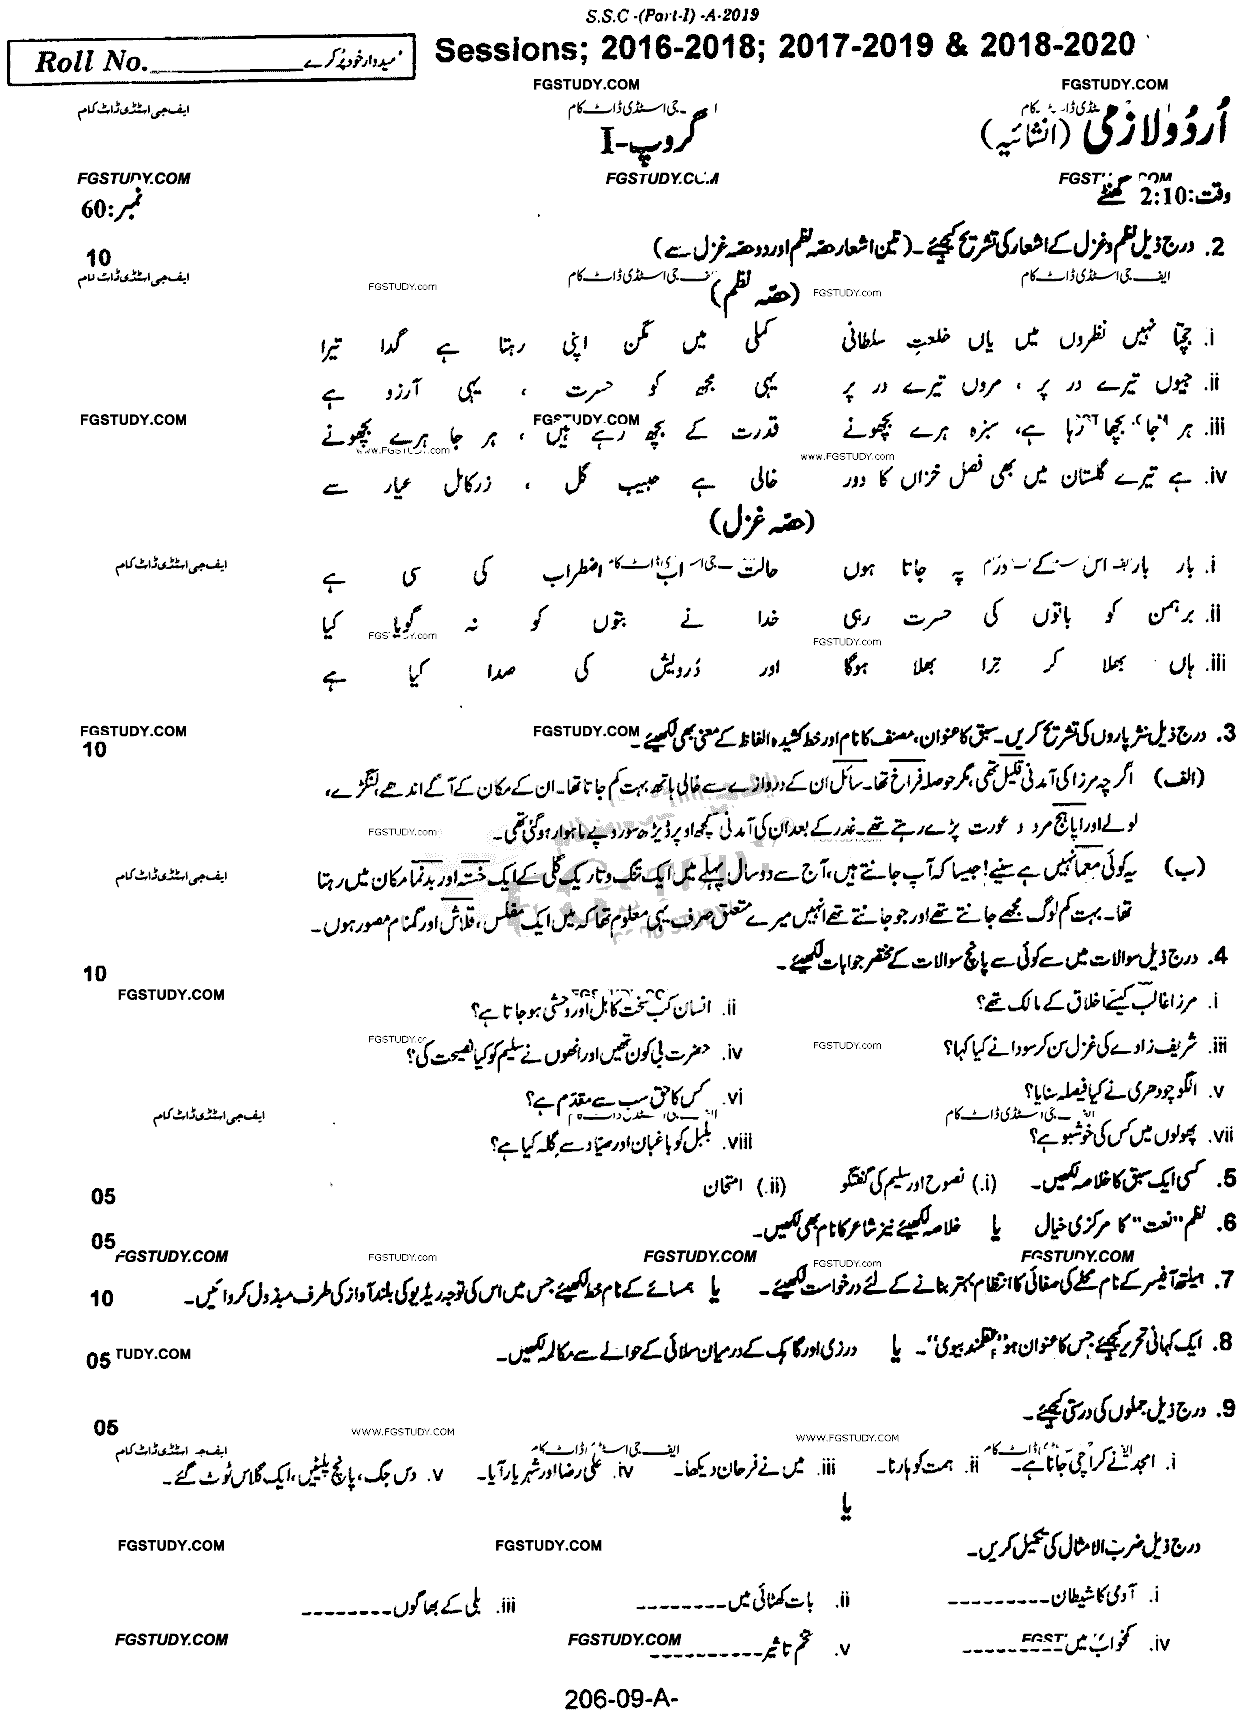 S.S.C -(Part-I) -A-2019
Roll No.__________ امیدوار خود پُر کرے Sessions; 2016-2018; 2017-2019 & 2018-2020
FGSTUDY.COM FGSTUDY.COM
اُردُو لازمی (انشائیہ) گروپ-I ایف جی اسٹڈی ڈاٹ کام
FGSTUDY.COM FGSTUDY.COM
وقت: 2:10 گھنٹے نمبر: 60
2. درج ذیل نظم و غزل کے اشعار کی تشریح کیجئے۔ (تین اشعار حصّہ نظم اور دو حصّہ غزل سے) 10
ایف جی اسٹڈی ڈاٹ کام FGSTUDY.com FGSTUDY.com
(حصّہ نظم)
i. جچتا نہیں نظروں میں یاں خلعتِ سلطانی کملی میں مگن اپنی رہتا ہے گدا تیرا
ii. جیوں تیرے در پر ، مروں تیرے در پر یہی مجھ کو حسرت ، یہی آرزو ہے
FGSTUDY.COM FGSTUDY.COM
iii. ہر جا بچھا رہا ہے، سبزہ ہرے بچھونے قدرت کے بچھ رہے ہیں ، ہر جا ہرے بچھونے
www.FGSTUDY.com www.FGSTUDY.com
iv. ہے تیرے گلستان میں بھی فصل خزاں کا دور خالی ہے جیب گل ، زرکامل عیار سے
(حصّہ غزل)
i. بار بار اس کے در پہ جاتا ہوں حالت اب اضطراب کی سی ہے
ایف جی اسٹڈی ڈاٹ کام
ii. برہمن کو باتوں کی حسرت رہی خدا نے بتوں کو نہ گویا کیا
FGSTUDY.com FGSTUDY.com
iii. ہاں بھلا کر ترا بھلا ہوگا اور دُرویش کی صدا کیا ہے
FGSTUDY.COM FGSTUDY.COM
3. درج ذیل نثر پاروں کی تشریح کریں۔ سبق کا عنوان، مصنف کا نام اور خط کشیدہ الفاظ کے معنی بھی لکھیئے۔ 10
(الف) اگرچہ مرزا کی آمدنی قلیل تھی، مگر حوصلہ فراخ تھا۔ سائل ان کے دروازے سے خالی ہاتھ بہت کم جاتا تھا۔ ان کے مکان کے آگے اندھے، لنگڑے،
لولے اور اپاہج مرد و عورت پڑے رہتے تھے۔ غدر کے بعد ان کی آمدنی کچھ اوپر ڈیڑھ سو روپے ماہوار ہوگئی تھی۔
FGSTUDY.com
(ب) یہ کوئی معما نہیں ہے سنیے! جیسا کہ آپ جانتے ہیں، آج سے دو سال پہلے میں ایک تنگ و تاریک گلی کے ایک خستہ اور بدنما مکان میں رہتا
ایف جی اسٹڈی ڈاٹ کام
تھا۔ بہت کم لوگ مجھے جانتے تھے اور جو جانتے تھے انہیں میرے متعلق صرف یہی معلوم تھا کہ میں ایک مفلس، قلاش اور گمنام مصور ہوں۔
4. درج ذیل سوالات میں سے کوئی سے پانچ سوالات کے مختصر جوابات لکھیئے۔ 10
FGSTUDY.COM
i. مرزا غالب کیسے اخلاق کے مالک تھے؟ ii. انسان کب سخت کاہل اور وحشی ہو جاتا ہے؟
iii. شریف زادے کی غزل سن کر سودا نے کیا کہا؟ iv. حضرت بی کون تھیں اور انھوں نے سلیم کو کیا نصیحت کی؟
FGSTUDY.com
v. الگو چودھری نے کیا فیصلہ سنایا؟ vi. کس کا حق سب سے مقدم ہے؟
ایف جی اسٹڈی ڈاٹ کام
vii. پھولوں میں کس کی خوشبو ہے؟ viii. بلبل کو باغبان اور صیاد سے گلہ کیا ہے؟
5. کسی ایک سبق کا خلاصہ لکھیں۔ (i.) نصوح اور سلیم کی گفتگو (ii.) امتحان 05
6. نظم "نعت" کا مرکزی خیال یا خلاصہ لکھیئے نیز شاعر کا نام بھی لکھیں۔ 05
FGSTUDY.COM FGSTUDY.com FGSTUDY.COM FGSTUDY.com FGSTUDY.COM
7. ہیلتھ آفیسر کے نام محلے کی صفائی کا انتظام بہتر بنانے کے لئے درخواست لکھیئے۔ یا ہمسائے کے نام خط لکھیئے جس میں اس کی توجہ ریڈیو کی بلند آواز کی طرف مبذول کروائیں۔ 10
8. ایک کہانی تحریر کیجئے جس کا عنوان ہو "عقلمند بیوی"۔ یا درزی اور گاہک کے درمیان سلائی کے حوالے سے مکالمہ لکھیں۔ 05
TUDY.COM
9. درج ذیل جملوں کی درستی کیجئے۔ 05
WWW.FGSTUDY.COM WWW.FGSTUDY.COM
i. امجد نے کراچی جانا ہے۔ ii. ہمت کو ہارنا۔ iii. میں نے فرحان دیکھا۔ iv. علی رضا اور شہریار آیا۔ v. دس جگ، پانچ پلیٹیں، ایک گلاس ٹوٹ گئے۔
یا
درج ذیل ضرب الامثال کی تکمیل کریں۔
FGSTUDY.COM FGSTUDY.COM
i. آدمی کا شیطان ---------- ii. بات کھٹائی میں --------- iii. بلی کے بھاگوں ---------
iv. کمخواب میں ---------- v. تخم تاثیر ----------
FGSTUDY.COM FGSTUDY.COM
206-09-A-